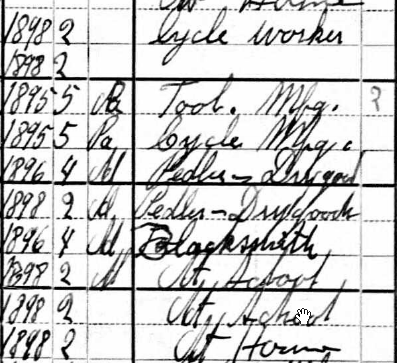 At Home
1898 2 Cycle Worker
1898 2
1895 5 Pa Tool. Mfg. ?
1895 5 Pa Cycle Mfg.
1896 4 Al Pedler - Drygood
1898 2 Al Pedler - Drygoods
1896 4 Al Blacksmith
1898 2 Al At School
1898 2 At School
1898 2 At Home